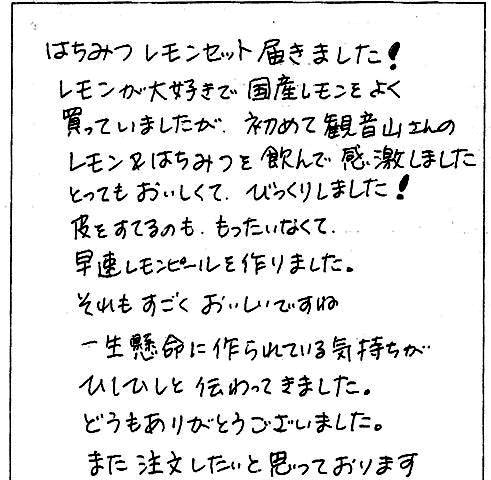 はちみつレモンセット届きました!
レモンが大好きで国産レモンをよく
買っていましたが、初めて観音山さんの
レモン&はちみつを飲んで感激しました
とってもおいしくて、びっくりしました!
皮をすてるのも、もったいなくて、
早速レモンピールを作りました。
それもすごくおいしいですね
一生懸命に作られている気持ちが
ひしひしと伝わってきました。
どうもありがとうございました。
また注文したいと思っております